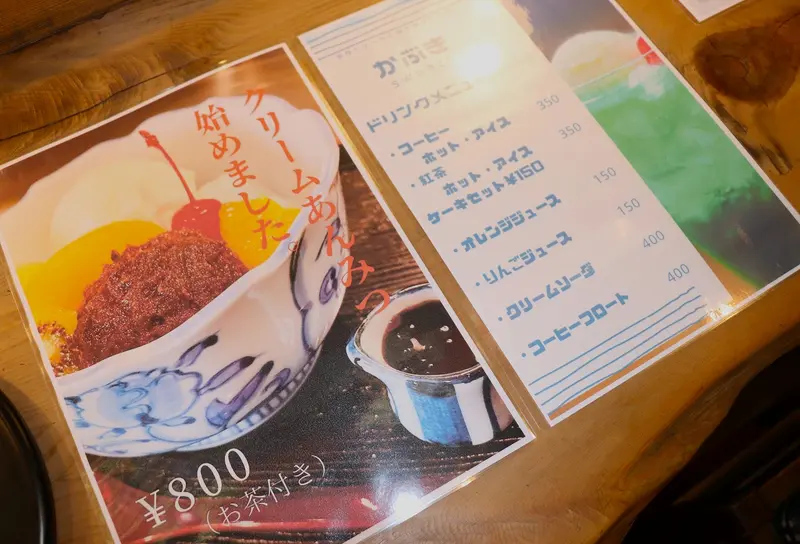 クリームあんみつ
始めました。
¥800
(お茶付き)
かぶき
ドリンクメニュー
・コーヒー 350
ホット・アイス
・紅茶 350
ホット・アイス
ケーキセット¥150
・オレンジジュース 150
・りんごジュース 150
・クリームソーダ 400
・コーヒーフロート 400